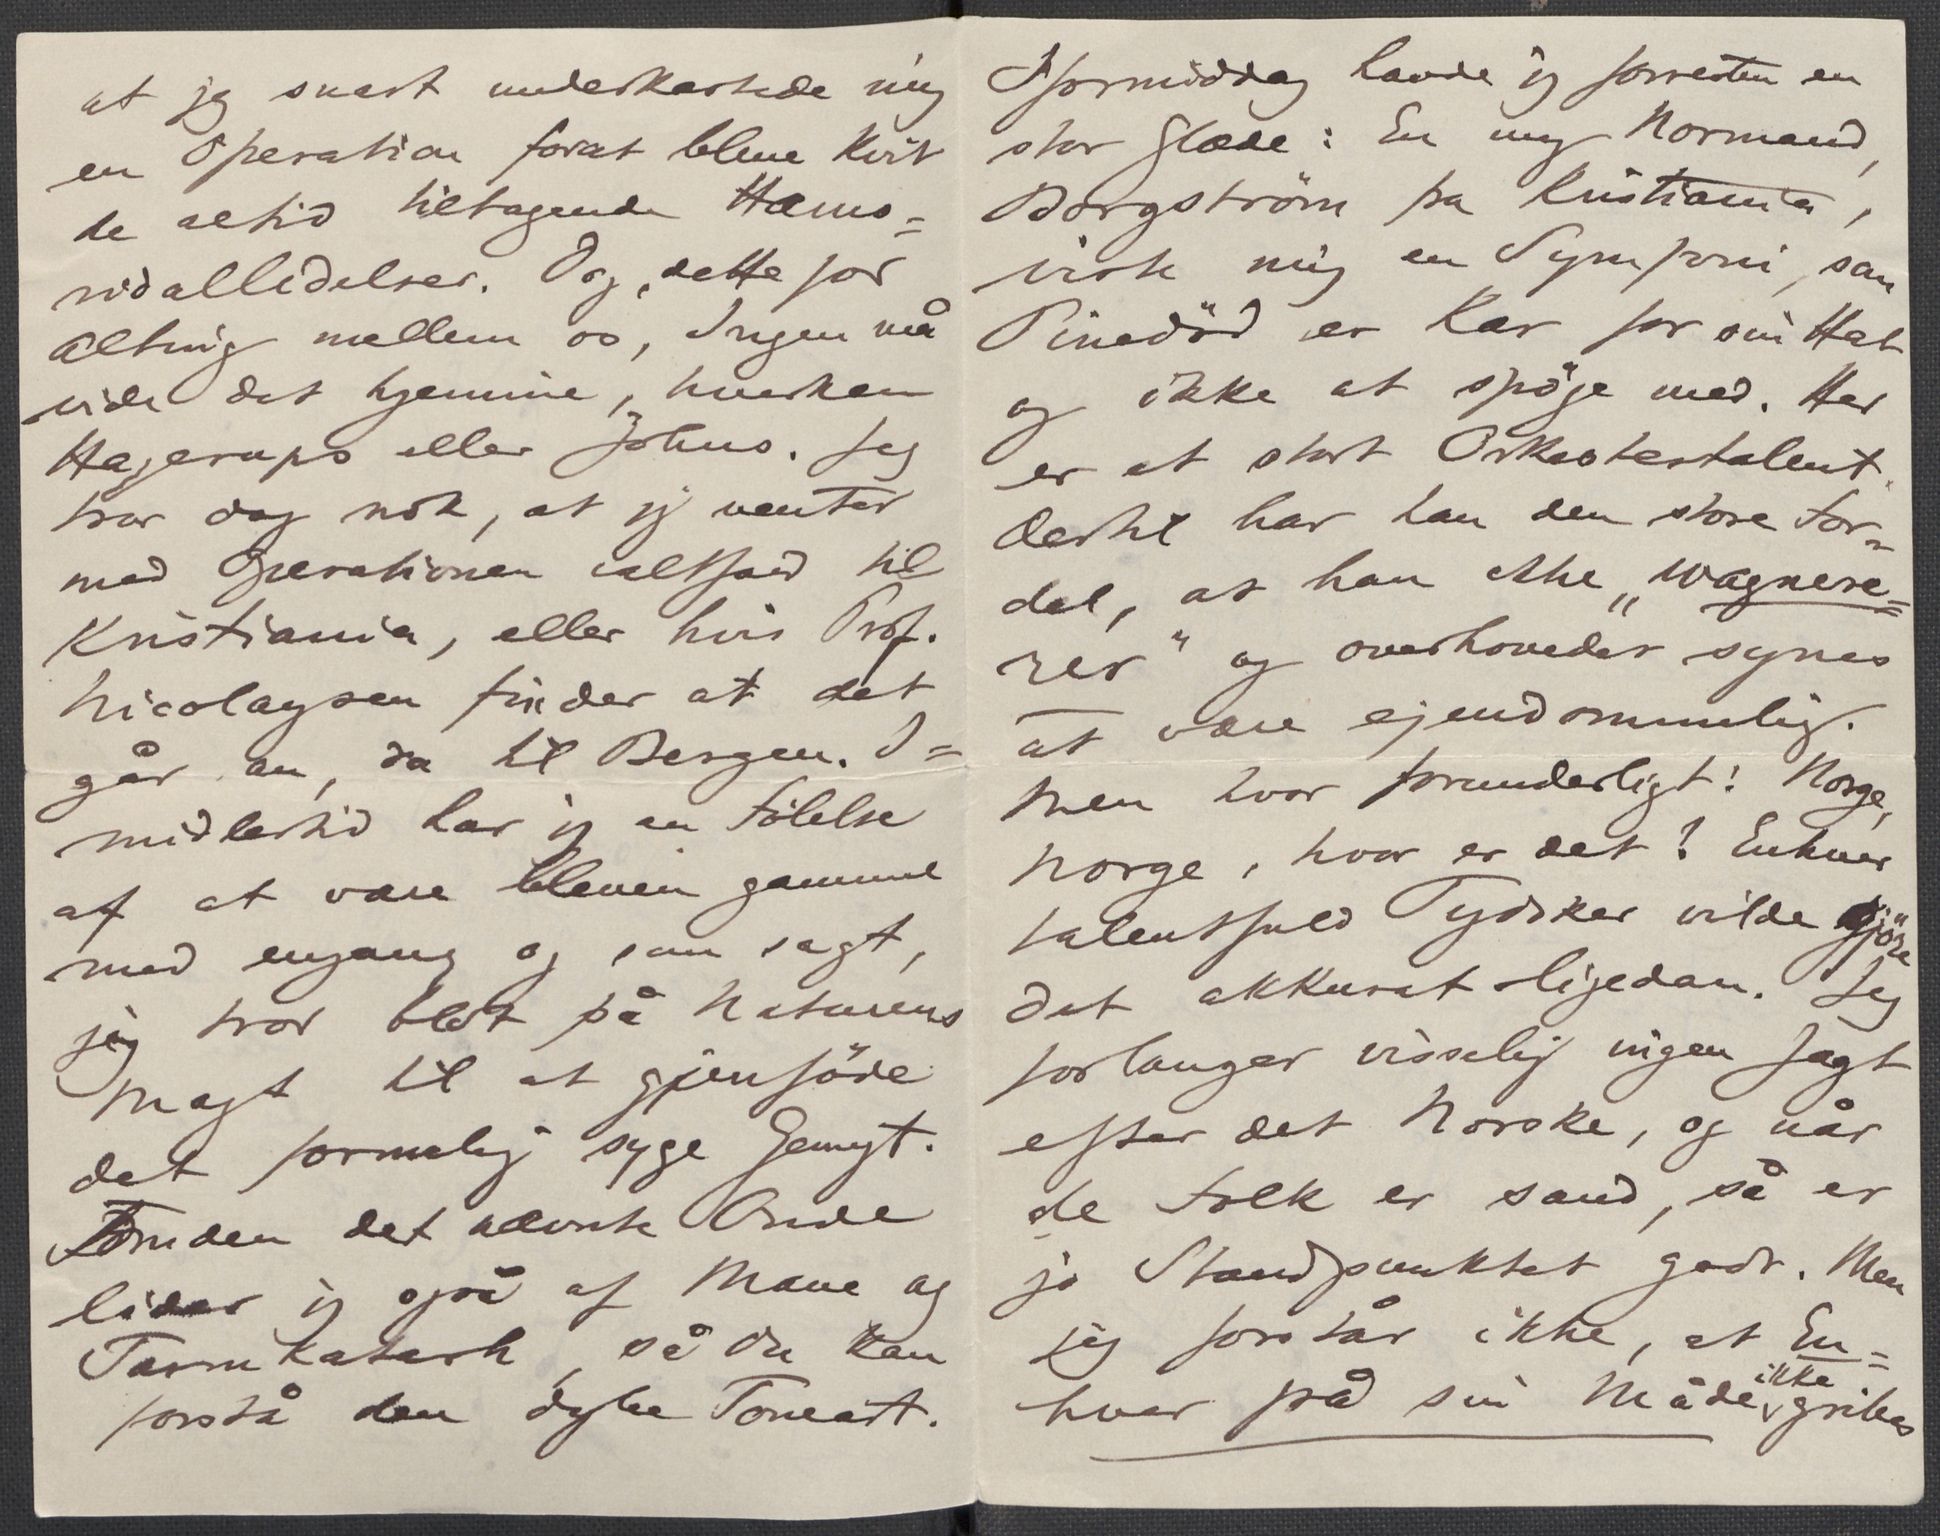 at jeg snart underkastede mig
en Operation forat blive kvit
de altid tiltagende Hæmo=
ridallidelser. Dog, dette for
Alting mellem os, Ingen må
vide det hjemme, hverken
Hagerups eller Johns. Jeg
tror dog nok, at jeg venter
med Operationen ialtfald til
Kristiania, eller hvis Prof.
Nicolaysen finder at det
går an, da til Bergen. I=
midlertid har jeg en Følelse
af at være bleven gammel
med engang og som sagt,
jeg tror blot på Naturens
Magt til at gjenføde
det formelig syge Gemyt.
Foruden det nævnte Onde
lider jeg også af Mave og
Tarmkatarrh, så Du kan
forstå den dybe Toneart.
Iformiddag havde jeg forresten en
stor Glæde: En ung Normand,
Borgström fra Kristiania,
viste mig en Symfoni, som
Pinedöd er Kar for sin Hat
og ikke at spöge med. Her
er et stort Orkestertalent.
Dertil har han den store For=
del, at han ikke „wagnere=
rer" og overhovedet synes
at være ejendommelig.
Men hvor forunderligt! Norge,
Norge, hvor er det? Enhver
talentfuld Tydsker vilde gjöre
det akkurat ligedan. Jeg
forlanger visselig ingen Jagt
efter det Norske, og når
de Folk er sand, så er
jo Standpunktet godt. Men
jeg forstår ikke, at En=
hver på sin Måde ikke gribes